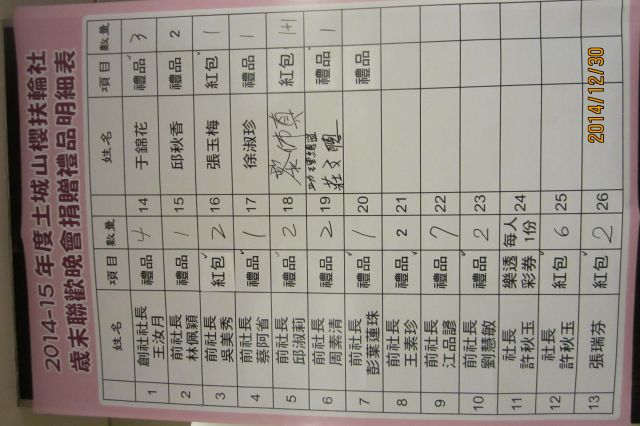 2014-15 年度土城山櫻扶輪社
歲末聯歡晚會捐贈禮品明細表
姓名 項目 數量 姓名 項目 數量
1 創社社長 王汝月 禮品 4 14 于錦花 禮品 3
2 前社長 林佩穎 禮品 1 15 邱秋香 禮品 2
3 前社長 吳美秀 紅包 2 16 張玉梅 紅包 1
4 前社長 蔡阿省 禮品 1 17 徐淑珍 禮品 1
5 前社長 邱淑莉 禮品 2 18 紅包 1+1
6 前社長 周素清 禮品 2 19 禮品 1
7 前社長 彭葉蓮珠 禮品 1 20 禮品
8 前社長 王素珍 禮品 2 21
9 前社長 江品諺 禮品 7 22
10 前社長 劉慧敏 禮品 2 23
11 社長 許秋玉 樂透彩券 每人1份 24
12 社長 許秋玉 紅包 6 25
13 張瑞芬 紅包 2 26
2014/12/30